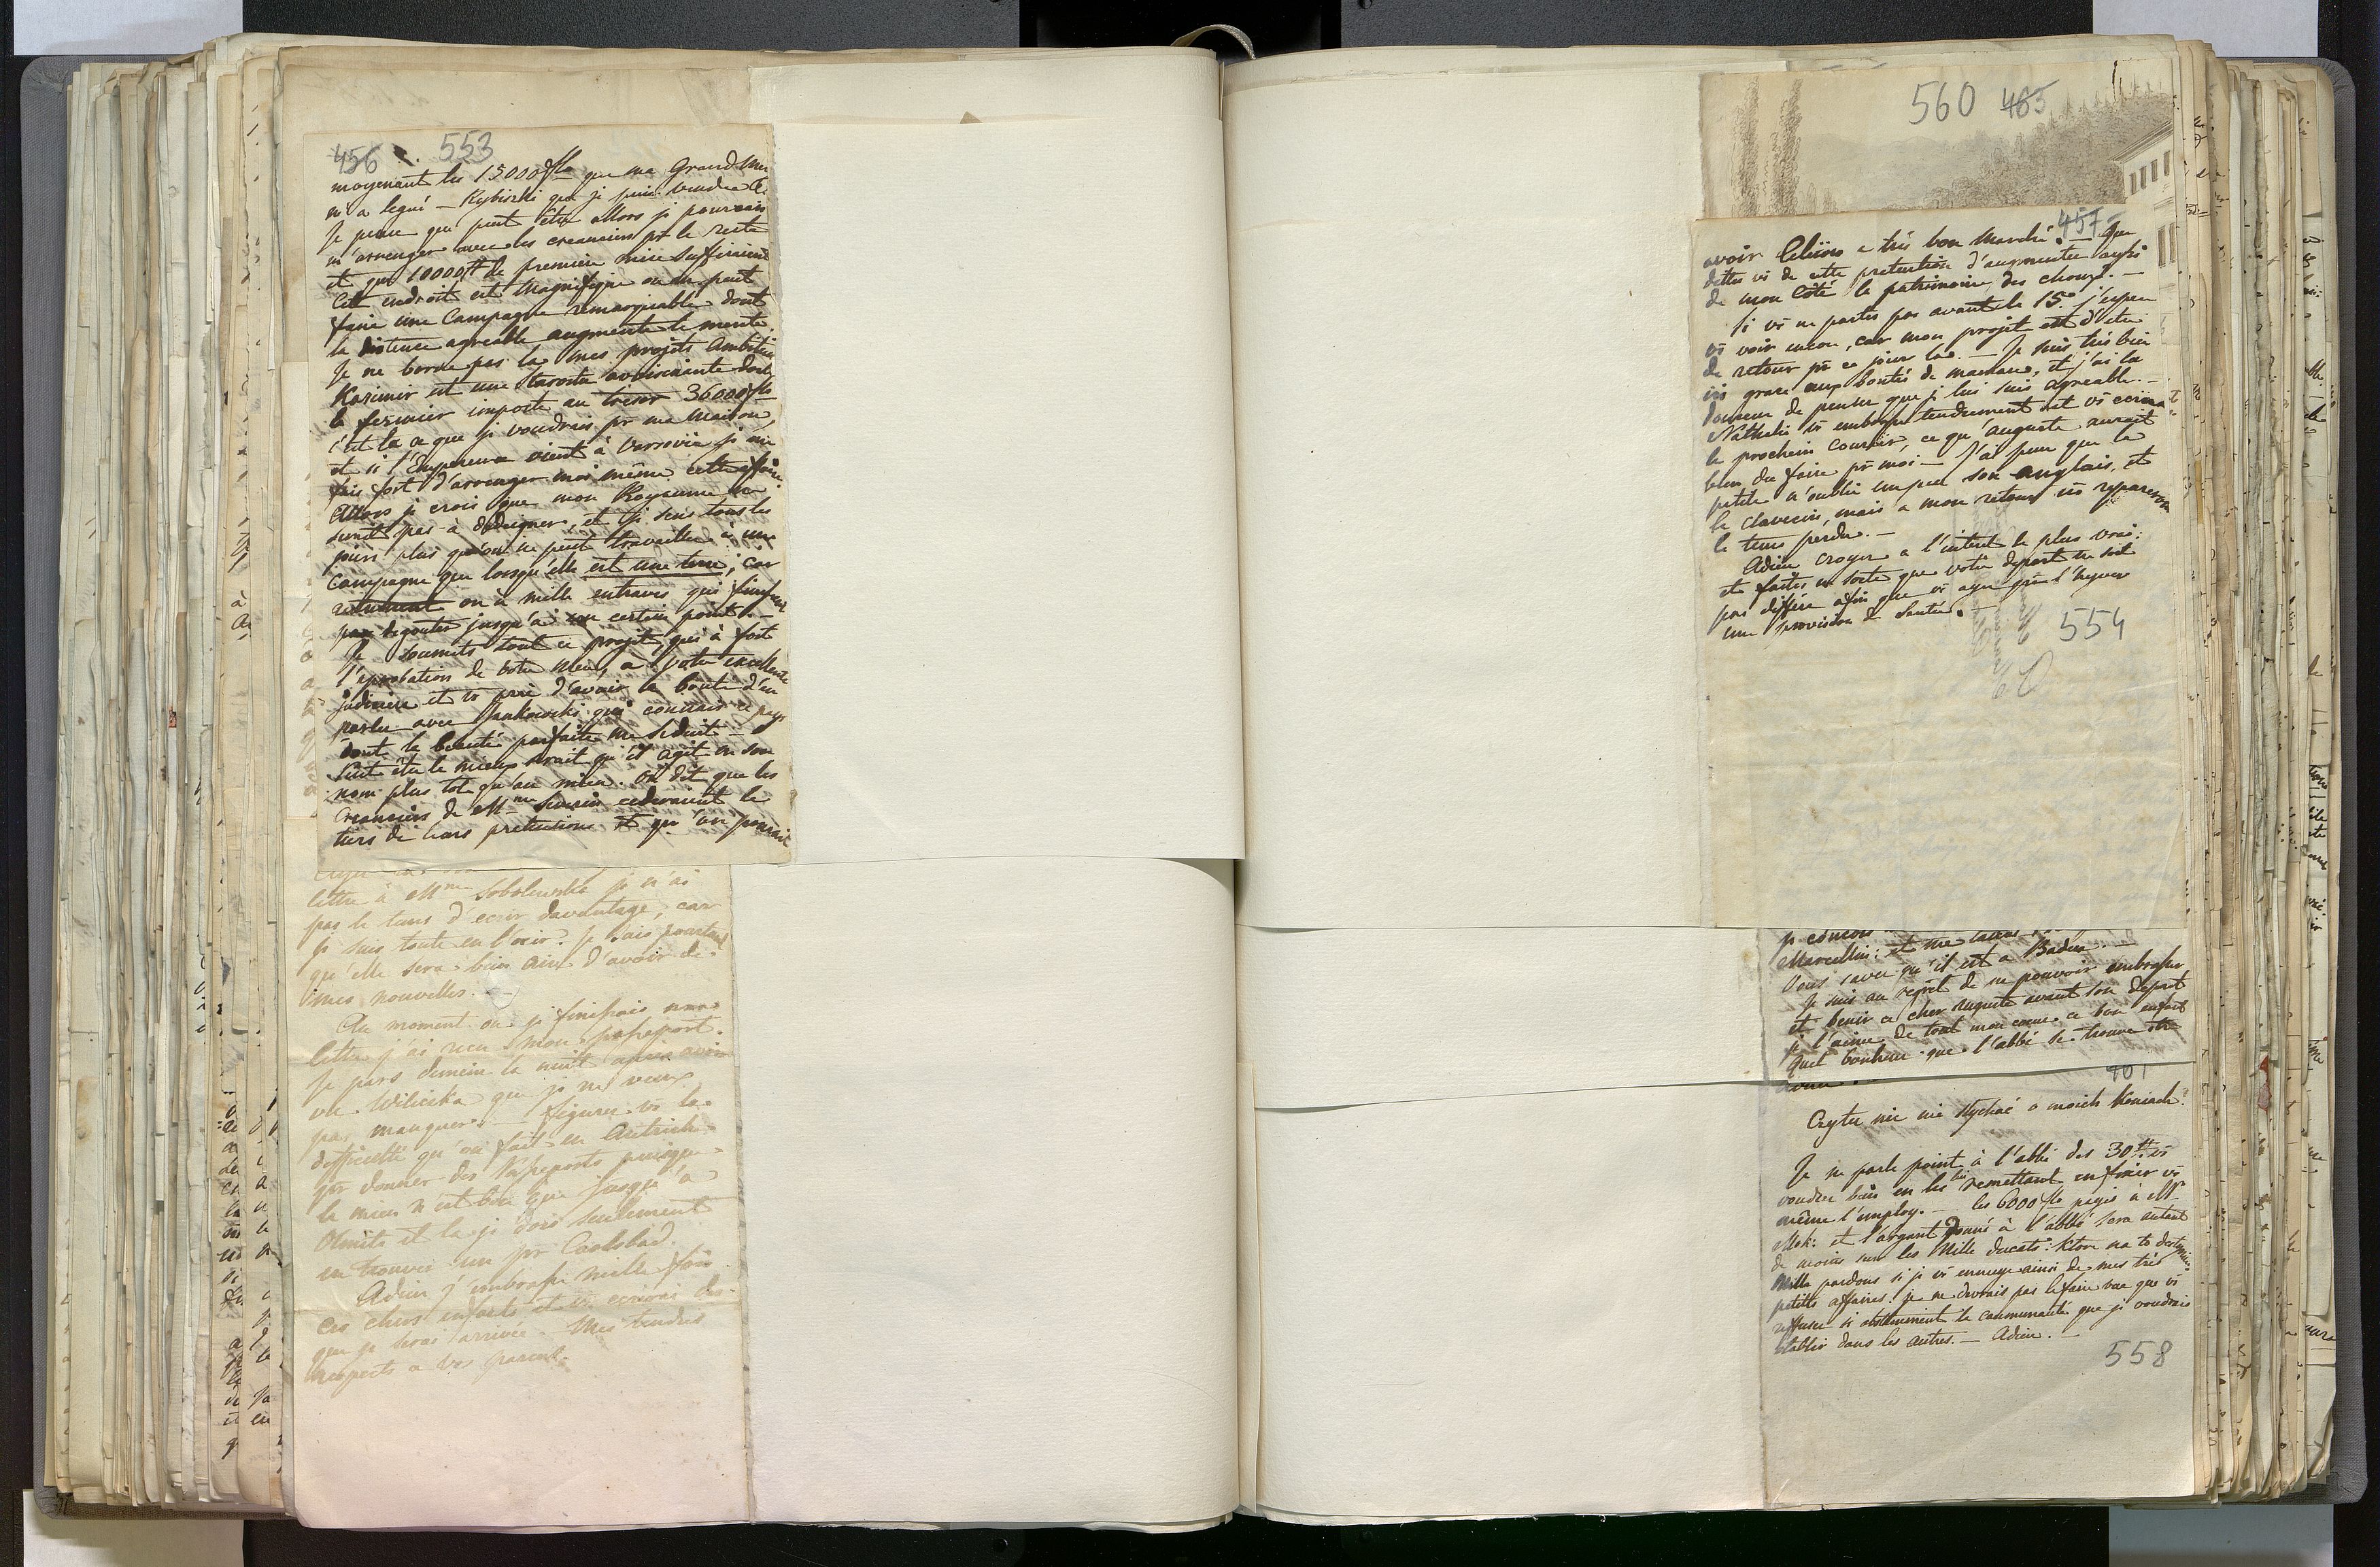 456 553
moyenant les 15000 fls que ma Grand'Mere
m'a legué — Rybiszki que je puis vendre &.
Je pense que peut être allors je pourrais
m'arrenger avec les creanciers pr le reste
et que 10000 # de premiere mise suffiraient
Cet endroit est Magnifique on en peut
faire une Campagne remarquable dont
la distence agreable augmente le merite.
Je ne borne pas la mes projets Ambitieux
Kazimir est une starostie avoisinante dont
le fermier importe au tresor 36000 fls
c'est la ce que je voudrais pr ma Maison,
et si l'Empereur vient à Varsovie je me
fais fort d'arrenger moi même cette affaire.
Allors je crois que mon Royaume ne
serait pas à dedaigner, et je sens tous les
jours plus qu'on ne peut travailler à une
Campagne que lorsqu'elle est une terre; car
autrement on à mille entraves qui finissent
par degouter jusqu'à un certain point. —
Je soumets tout ce projet, qui à fort
l'aprobation de votre Mere, à votre excellente
judiciere et vs prie d'avoir la bonté d'en
parler avec Jankowski qui connait ce pays
dont la beauté parfaite me seduit —
Peut être le mieux serait qu'il agit en son
nom plus tot qu'au mien. On dit que les
Creanciers de Mme Severin cederaient le
tiers de leurs pretentions et qu'on pourait
lettre à Mme Sobolewska je n'ai
pas le tems d'ecrir davantage, car
je suis toute en l'air. Je sais pourtant
qu'elle sera bien aise d'avoir de
mes nouvelles. —
Au moment ou je finissais ma
lettre j'ai recu mon passeport.
Je pars demein la nuit apres avoir
vu Wiliczka que je ne veux
pas manquer. — Figurez vs la
difficulté qu'on fait en Autriche
pr donner des Passeports puisque
le mien n'est bon que jusqu'à
Olmitz et la je dois seulement
en trouver un pr Carlsbad.
Adieu j'embrasse mille fois
ces chers enfants et vs ecrirai des
que je serai arrivée. Mes tendres
respects a vos parents.
560 463
457
avoir Celiiow a très bon Marché. — Que
dittes vs de cette pretention d'augmenter aussi
de mon Côté le patrimoine des choux. —
Si vs ne partes pas avant le 15 j'espere
vs voir encore, car mon projet est d'etre
de retour pr ce jour la. — Je suis très bien
ici grace aux bontés de maman, et j'ai la
douceur de penser que je lui suis agreable. —
Nathalie vs embrasse tendrement et vs ecrira
le prochein Courier, ce qu'auguste aurait
bien du faire pr moi — J'ai peur que la
petite n'oublie un peu son anglais, et
le clavecin, mais a mon retour ns reparerons
le tems perdu. —
Adieu croyez a l'interet le plus vrai:
et faites en sorte que votre depart ne soit
pas differe afin que vs ayez pr l'hyver
une provision de Santé. —
554
je concois
Marcellin: et me
Vous savez qu'il est a Baden. —
Je suis au regret de ne pouvoir embrasser
et benir ce cher auguste avant son depart
je l'aime de tout mon coeur ce bon enfant
Quel bonheur que l'abbé se trouve etre
461
Czyta nic nie slychać o moich Koniach?
Je ne parle point à l'abbé des 30 # vs
voudrez bien en les lui remettant en fixer vs
même l'employ. — les 6000 fls payés à Mr
Mok: et l'argent donné à l'abbé sera autant
de moins sur les Mille ducats:
Mille pardons si je vs ennuye ainsi de mes très
petites affaires. je ne devrais pas le faire vue que vs
reffusez si obstinement la communauté que je voudrais
etablir dans les autres. — Adieu. —
558